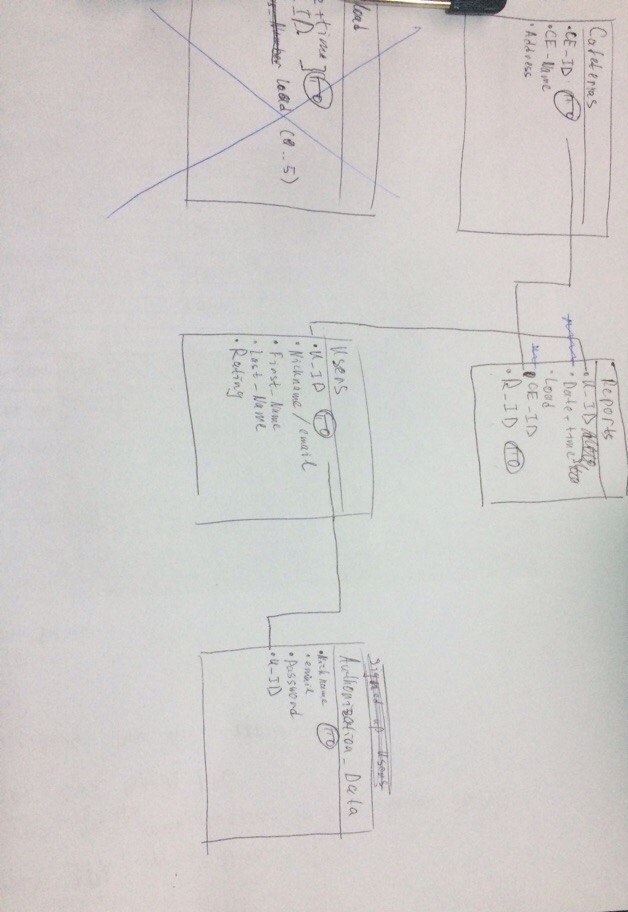 Cafeterias
• CE-ID
• CE-Name
• Address
Reports
• U_ID
• Date-time
• Load
• CE_ID
• R_ID
load
+time
ID
Number load (0..5)
Users
• U_ID
• Nickname / email
• First_Name
• Last_Name
• Rating
Signed up Users
Authorization_Data
• Nickname
• email
• Password
• U_ID